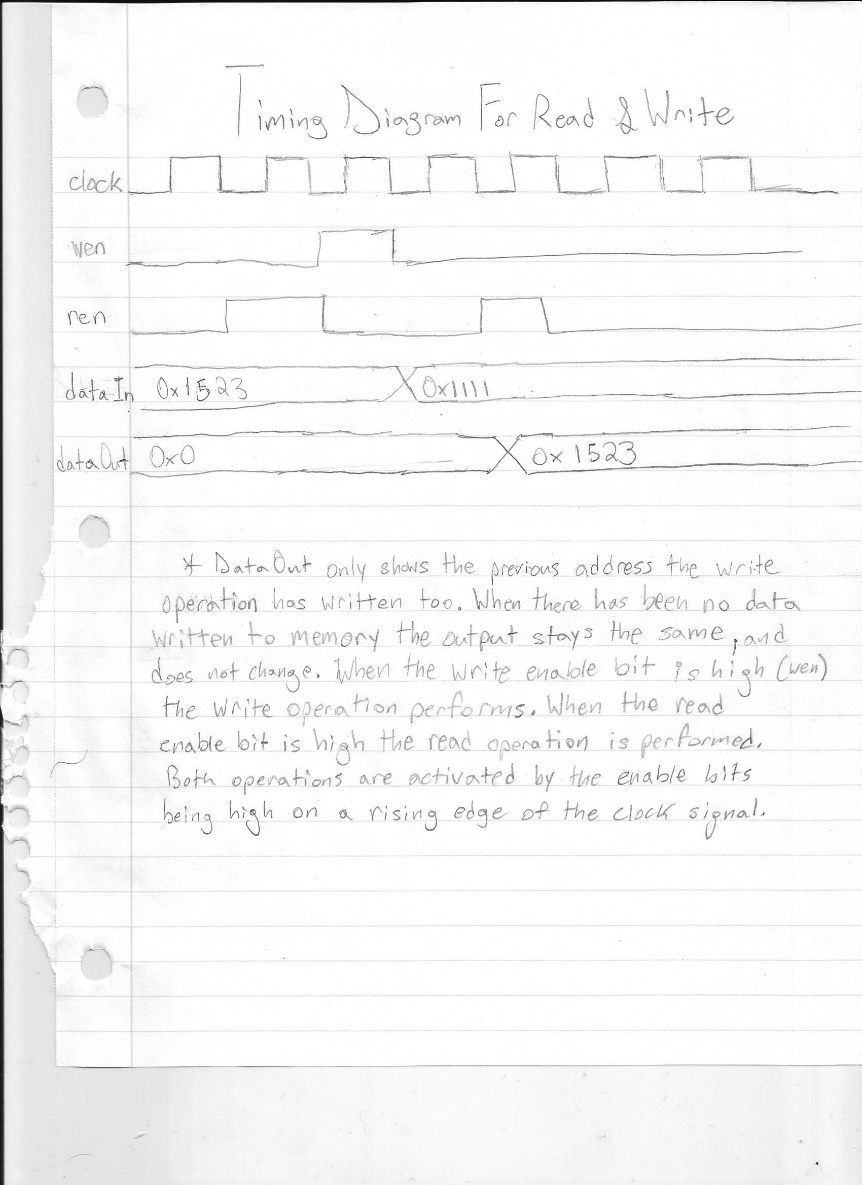 Timing Diagram For Read & Write
clock
wen
ren
dataIn 0x1523 0x1111
dataOut 0x0 0x1523
* DataOut only shows the previous address the write
operation has written too. When there has been no data
written to memory the output stays the same, and
does not change. When the write enable bit is high (wen)
the write operation performs. When the read
enable bit is high the read operation is performed.
Both operations are activated by the enable bits
being high on a rising edge of the clock signal.